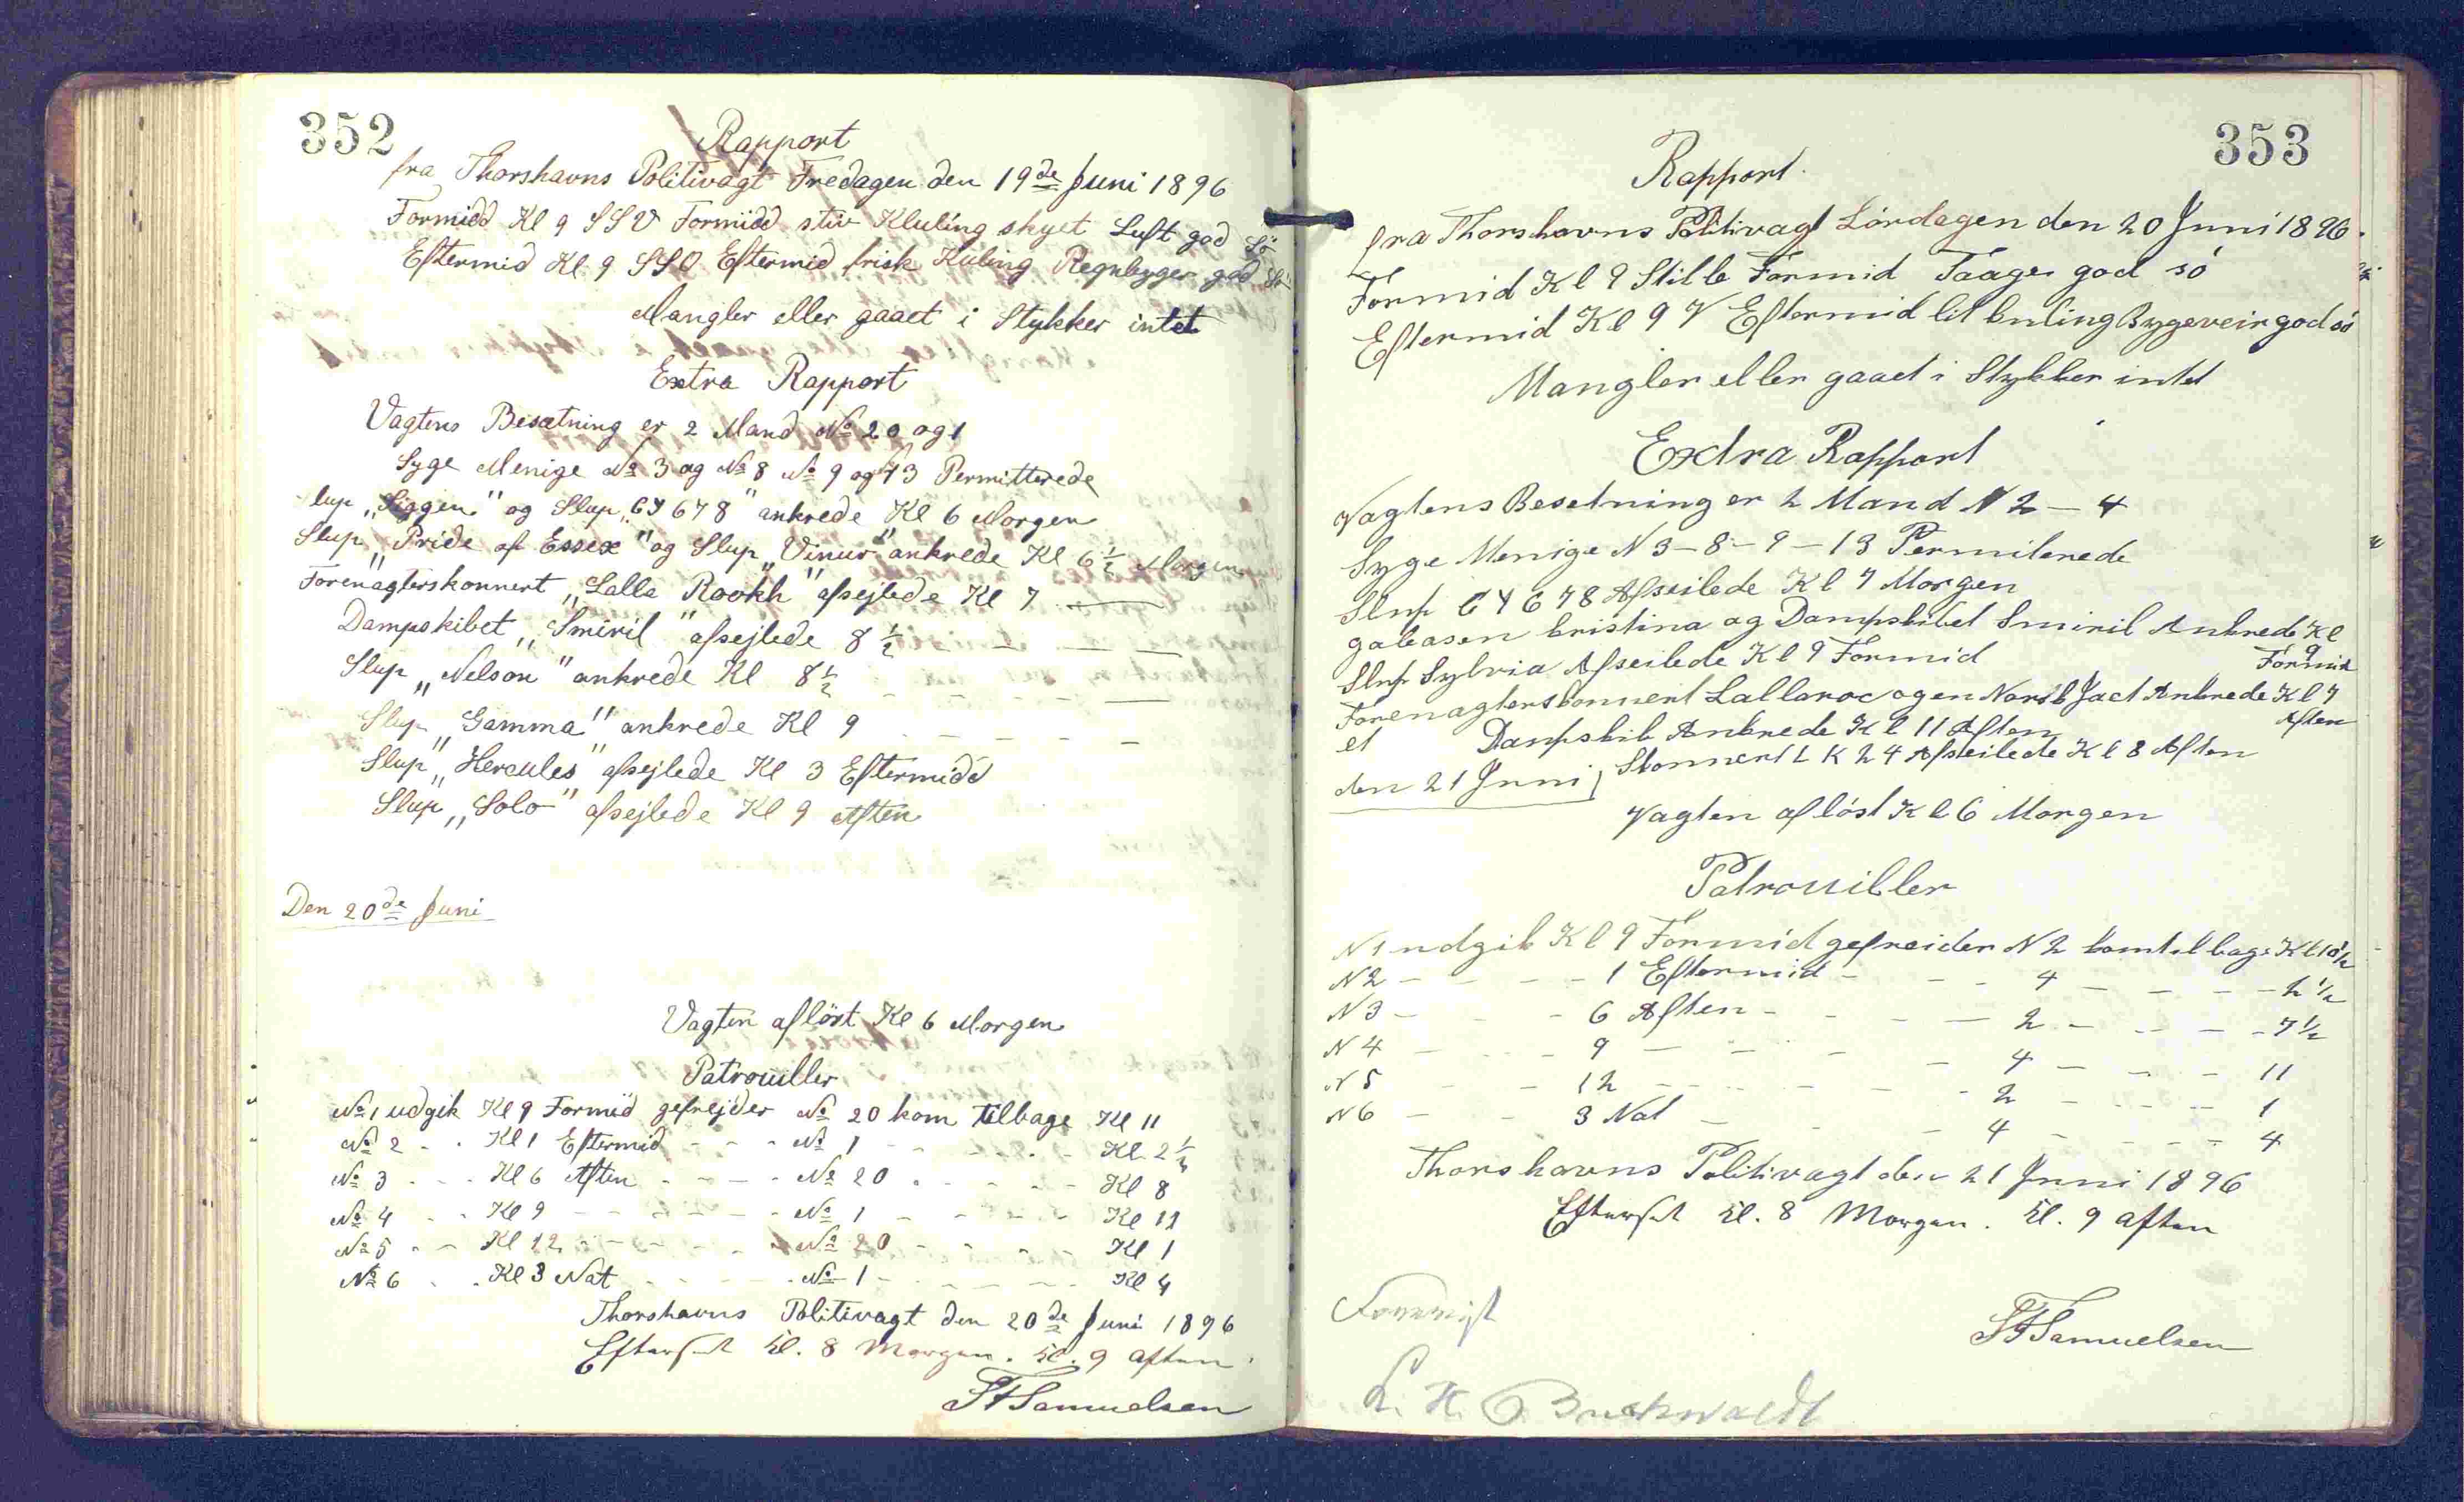 352
Rapport
fra Thorshavns Politivagt Fredagen den 19de Juni 1896
Formidd Kl 9 SSV Formidd stiv Kluling skyet Luft god Sö
Eftermid Kl 9 SSO Eftermid frisk Kuling Regnbyger god Sö
Mangler eller gaaet i Stykker intet
Extra Rapport
Vagtens Besætning er 2 Mand No 20 og 1
Syge Menige No 3 og No 8 No 9 og 13 Permitterede
lup „Siggen" og Slup „CY 678" ankrede Kl 6 Morgen
Slup „Pride af Essex" og Slup „Vinur" ankrede Kl 6 1/2 Morgen
Forenagterskonnert „Lalla Rookh" afsejlede Kl 7 —
Dampskibet „Smiril" afsejlede 8 1/2 - - —
Slup „Nelson" ankrede Kl 8 1/2 - - - - —
Slup „Gamma" ankrede Kl 9 - - - - -
Slup „Hercules" afsejlede Kl 3 Eftermidd
Slup „Solo" afsejlede Kl 9 Aften
Den 20de Juni
Vagten aflöst Kl 6 Morgen
Patrouiller
No 1 udgik Kl 9 Formid gefrejder No 20 kom tilbage Kl 11
No 2 - - Kl 1 Eftermid - - - No 1 - - - - - Kl 2 1/2
No 3 - - - Kl 6 Aften - - - - No 20 - - - - - Kl 8
No 4 - - Kl 9 - - - - - No 1 - - - - - Kl 11
No 5 - - Kl 12 - - - - - No 20 - - - - Kl 1
No 6 - - Kl 3 Nat - - - - No 1 - - - - - Kl 4
Thorshavns Politivagt den 20de Juni 1896
Efterset Kl. 8 Morgen. Kl. 9 Aften.
SFSamuelsen
353
Rapport.
fra Thorshavns Politivagt Lördagen den 20 Juni 1896.
Formid Kl 9 Stille Formid Taage god só
Eftermid Kl 9 V Eftermid lit kuling Bygeveir god só
Mangler eller gaaet i Stykker intet
Extra Rapport
Vagtens Besetning er 2 Mand N 2 - 4
Syge Menige N 3 - 8 - 9 - 13 Permiterede
Slup CY 678 Afseilede Kl 7 Morgen
galeasen kristina og Dampskibet Smiril Ankrede Kl 9 Formid
Slup Sylvia Afseilede Kl 9 Formid
Forenagterskonnert Lallaroc og en Norsk Jact Ankrede Kl 7 Aften
et Dampskib Ankrede Kl 11 Aften
Skonnert L K 24 Afseilede Kl 8 Aften
den 21 Juni
Vagten aflóst Kl 6 Morgen
Patrouiller
N 1 udgik Kl 9 Formid gefreider N 2 kom tilbage Kl 10 1/2
N 2 - - - - 1 Eftermid - - - 4 - - - - 2 1/2
N 3 - - - 6 Aften - - - - 2 - - - - 7 1/2
N 4 - - - 9 - - - - 4 - - - 11
N 5 - - 12 - - - - - 2 - - - - 1
N 6 - - 3 Nat - - - 4 - - - - 4
Thorshavns Politivagt den 21 Juni 1896
Efterset Kl. 8 Morgen. Kl. 9 Aften
SFSamuelsen
L. H. Buchwaldt